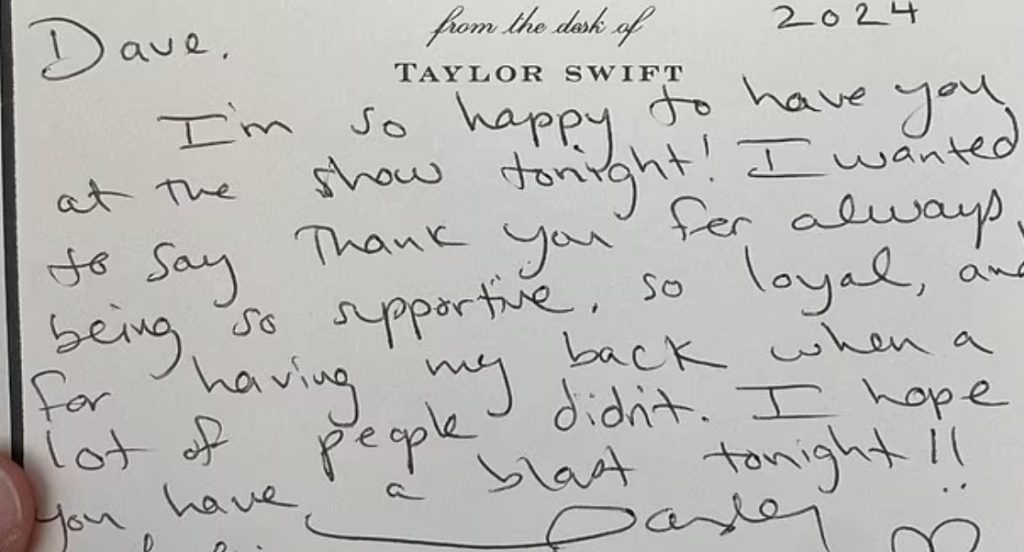 from the desk of
TAYLOR SWIFT
2024
Dave.
I'm so happy to have you
at the show tonight! I wanted
to say thank you for always
being so supportive, so loyal, and
for having my back when a
lot of people didn't. I hope
you have a blast tonight!!